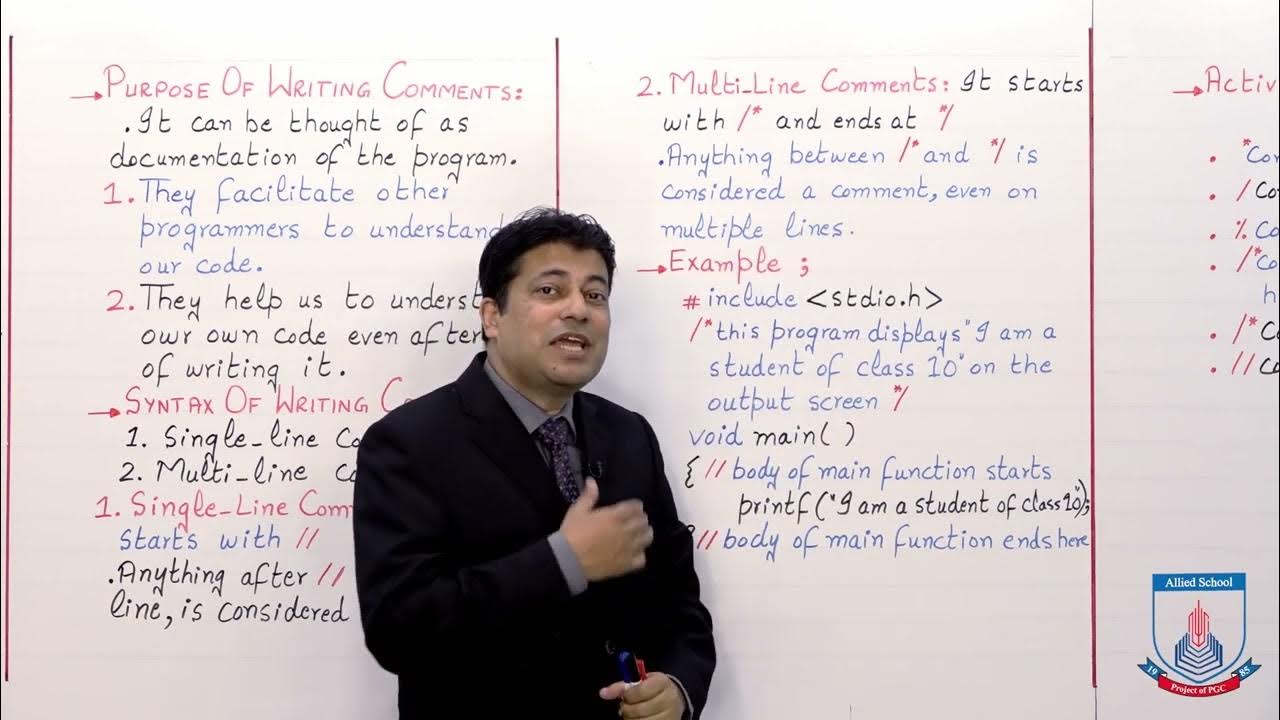 → PURPOSE OF WRITING COMMENTS:
. It can be thought of as
documentation of the program.
1. They facilitate other
programmers to understand
our code.
2. They help us to underst
our own code even after
of writing it.
→ SYNTAX OF WRITING
1. Single-line Co
2. Multi-line Co
1. Single-Line Com
starts with //
. Anything after //
line, is considered
2. Multi-Line Comments: It starts
with /* and ends at */
. Anything between /* and */ is
considered a comment, even on
multiple lines.
→ Example ;
# include <stdio.h>
/* this program displays "I am a
student of class 10" on the
output screen */
void main( )
{ // body of main function starts
printf ("I am a student of class 10");
// body of main function ends here
→ Activ
. *Co
. / Co
. % Co
. /* Co
h
. /* C
. // Co
Allied School
19 85
Project of PGC